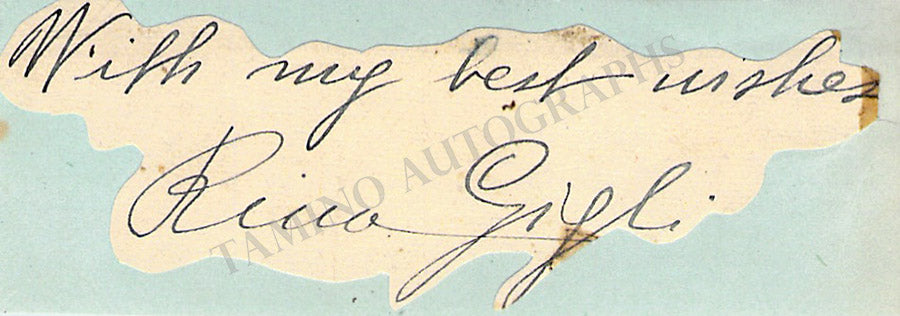 With my best wishes
Rina Gigli
TAMINO AUTOGRAPHS